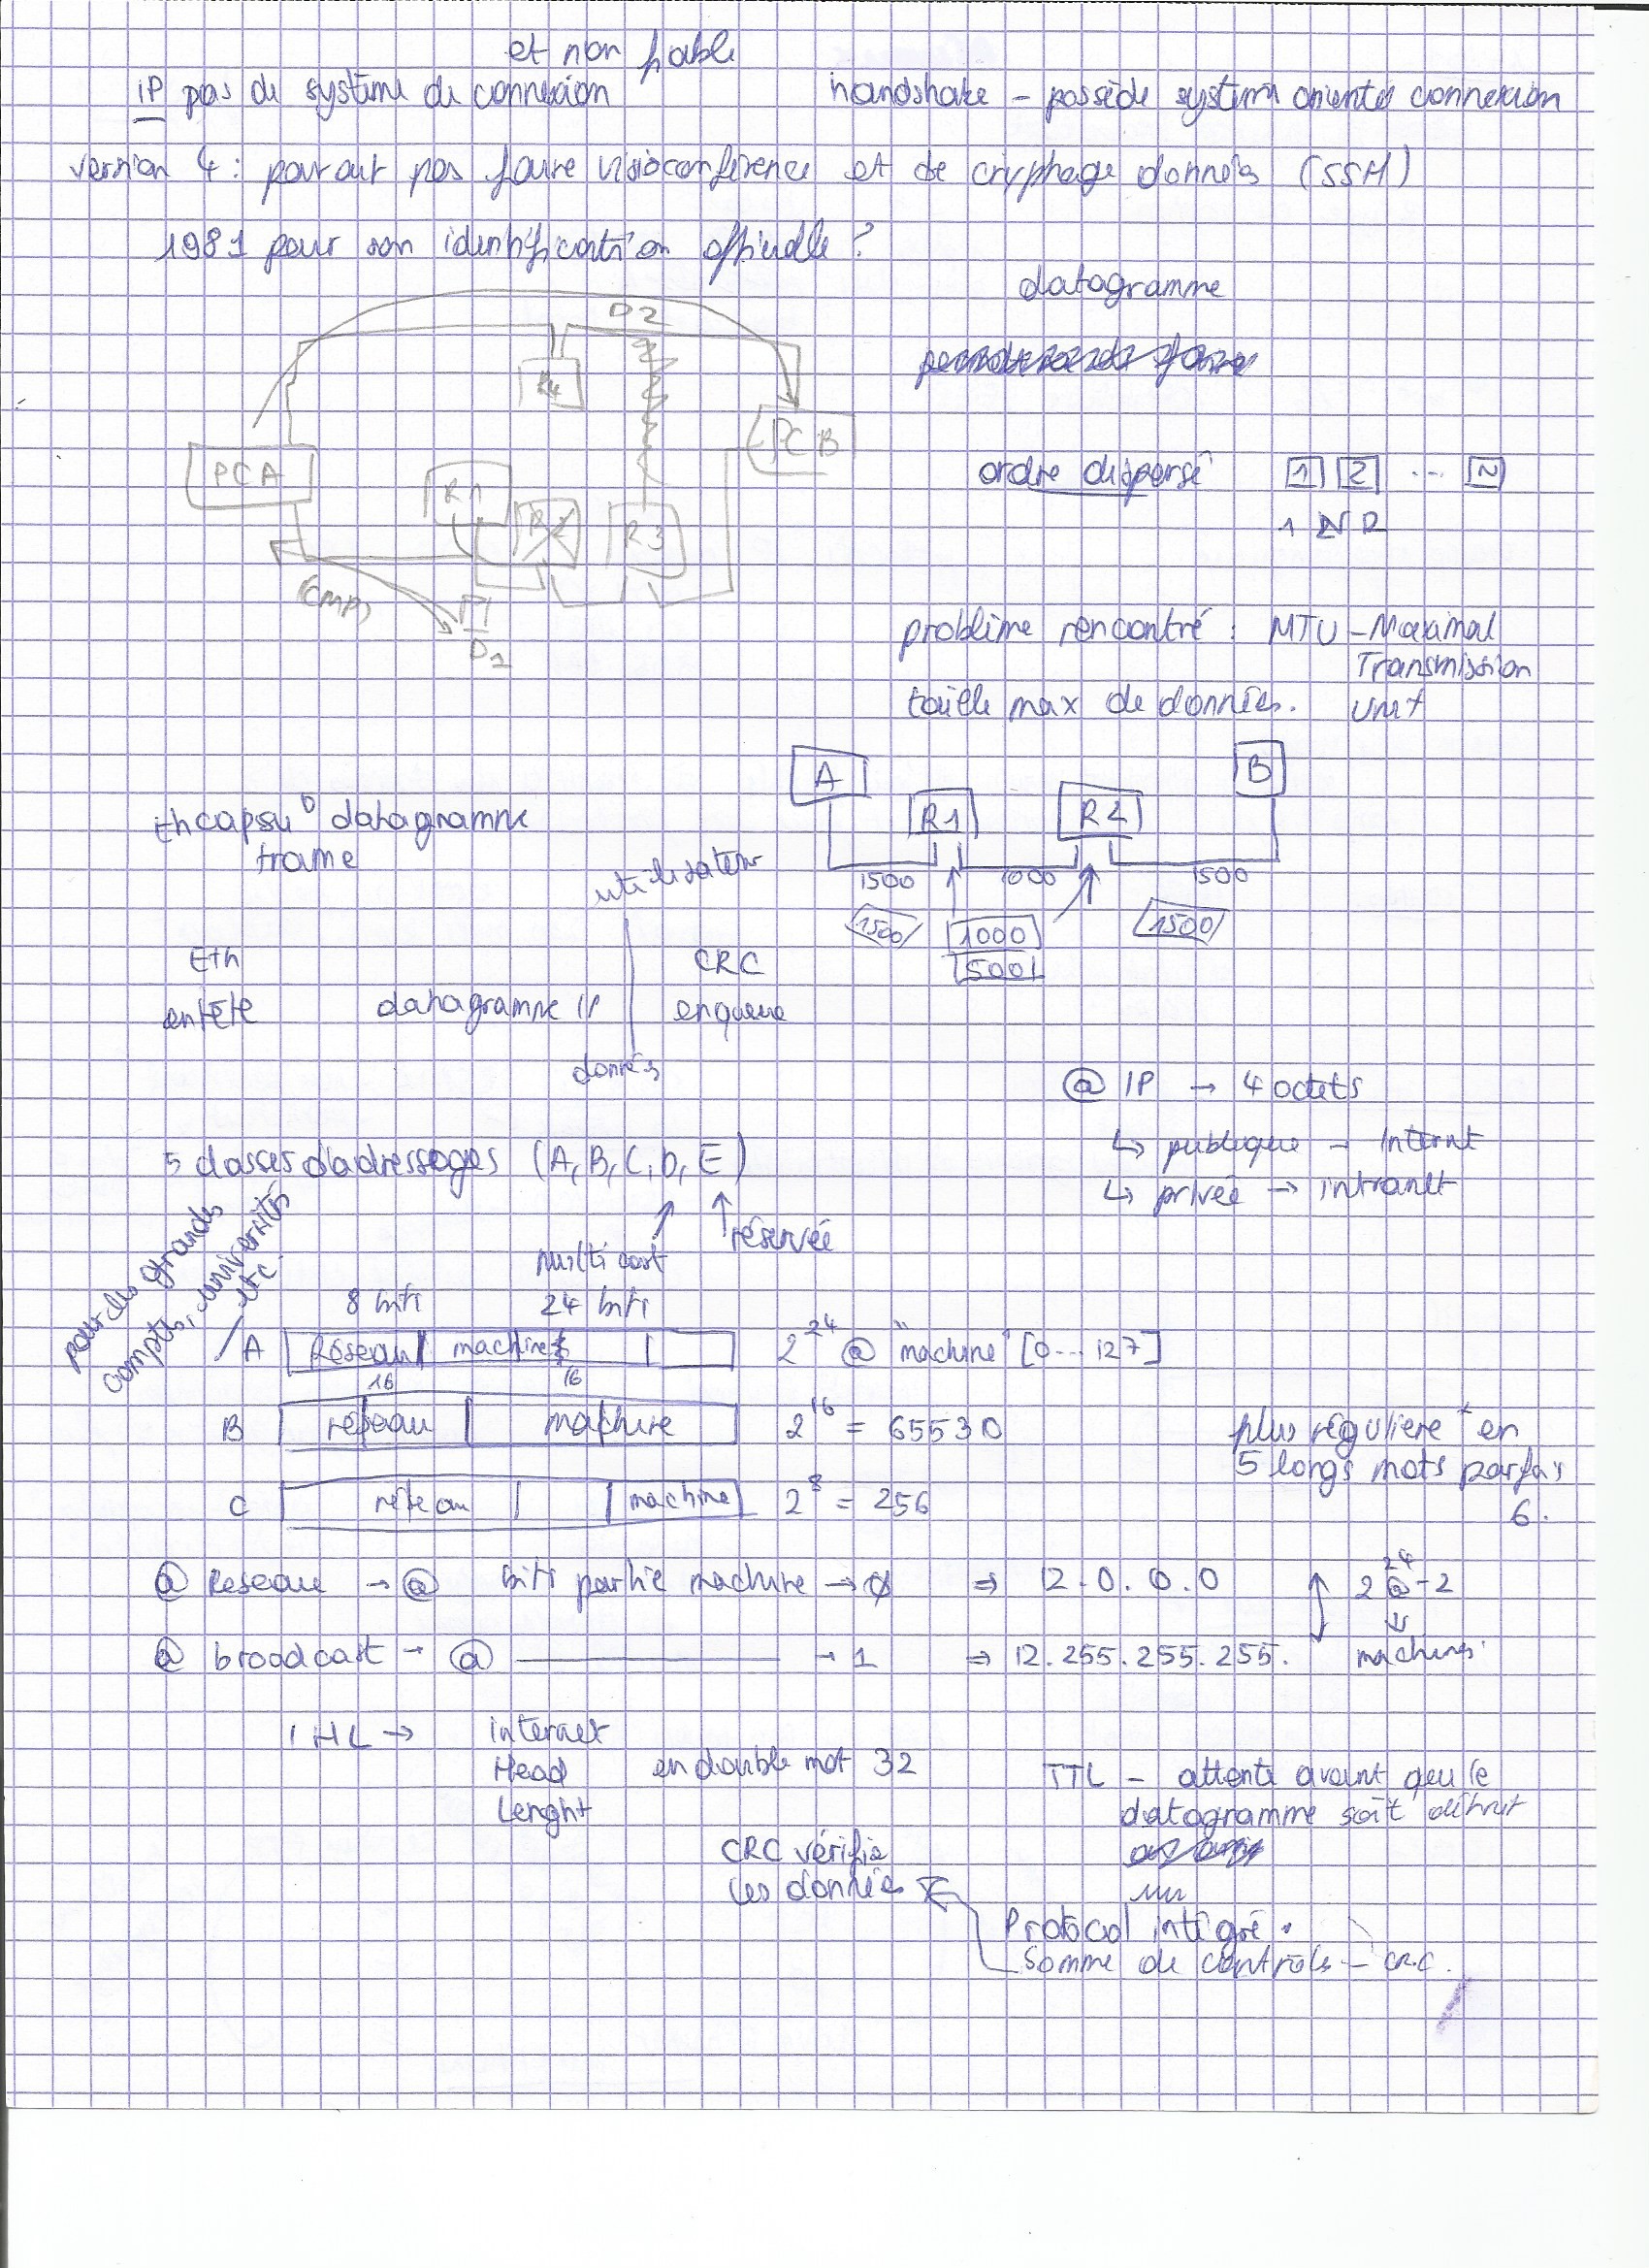 et non fiable
IP pas de système de connexion
handshake - possède système orienté connexion
version 4 : pouvait pas faire visioconférence et de cryphage données (SSH)
1981 pour son identification officielle ?
datagramme
D2
R4
PC B
PC A
R1
R2
R3
ordre dispersé 1 2 ... N
1 N 2
ICMP
D1
problème rencontré : MTU - Maximal
Transmission
Unit
taille max de données.
A
B
R1
R2
Encapsu° datagramme
trame
1500 1000 1500
1500 1000 1500
500
utilisateur
Eth
entête
datagramme IP
CRC
enqueue
données
@ IP → 4 octets
↳ publique - Internet
↳ privée → intranet
5 classes d'adressages (A, B, C, D, E)
multicast
réservée
pour des grands
comptes, universités
etc
8 bits 24 bits
A Réseau machine 2^24 @ "machine" [0...127]
16 16
B réseau machine 2^16 = 65530
C réseau machine 2^8 = 256
plus régulière + en
5 longs mots parfois
6.
@ Réseau → @ bits partie machine → 0 ⇒ 12.0.0.0
@ broadcast → @ ——— → 1 ⇒ 12.255.255.255.
2^24 @ -2
↓
machines
IHL → internet
Head
Lenght
en double mot 32
TTL - attente avant que le
datagramme soit détruit
CRC vérifie
les données
Protocol intégré.
Somme de contrôle - CRC.